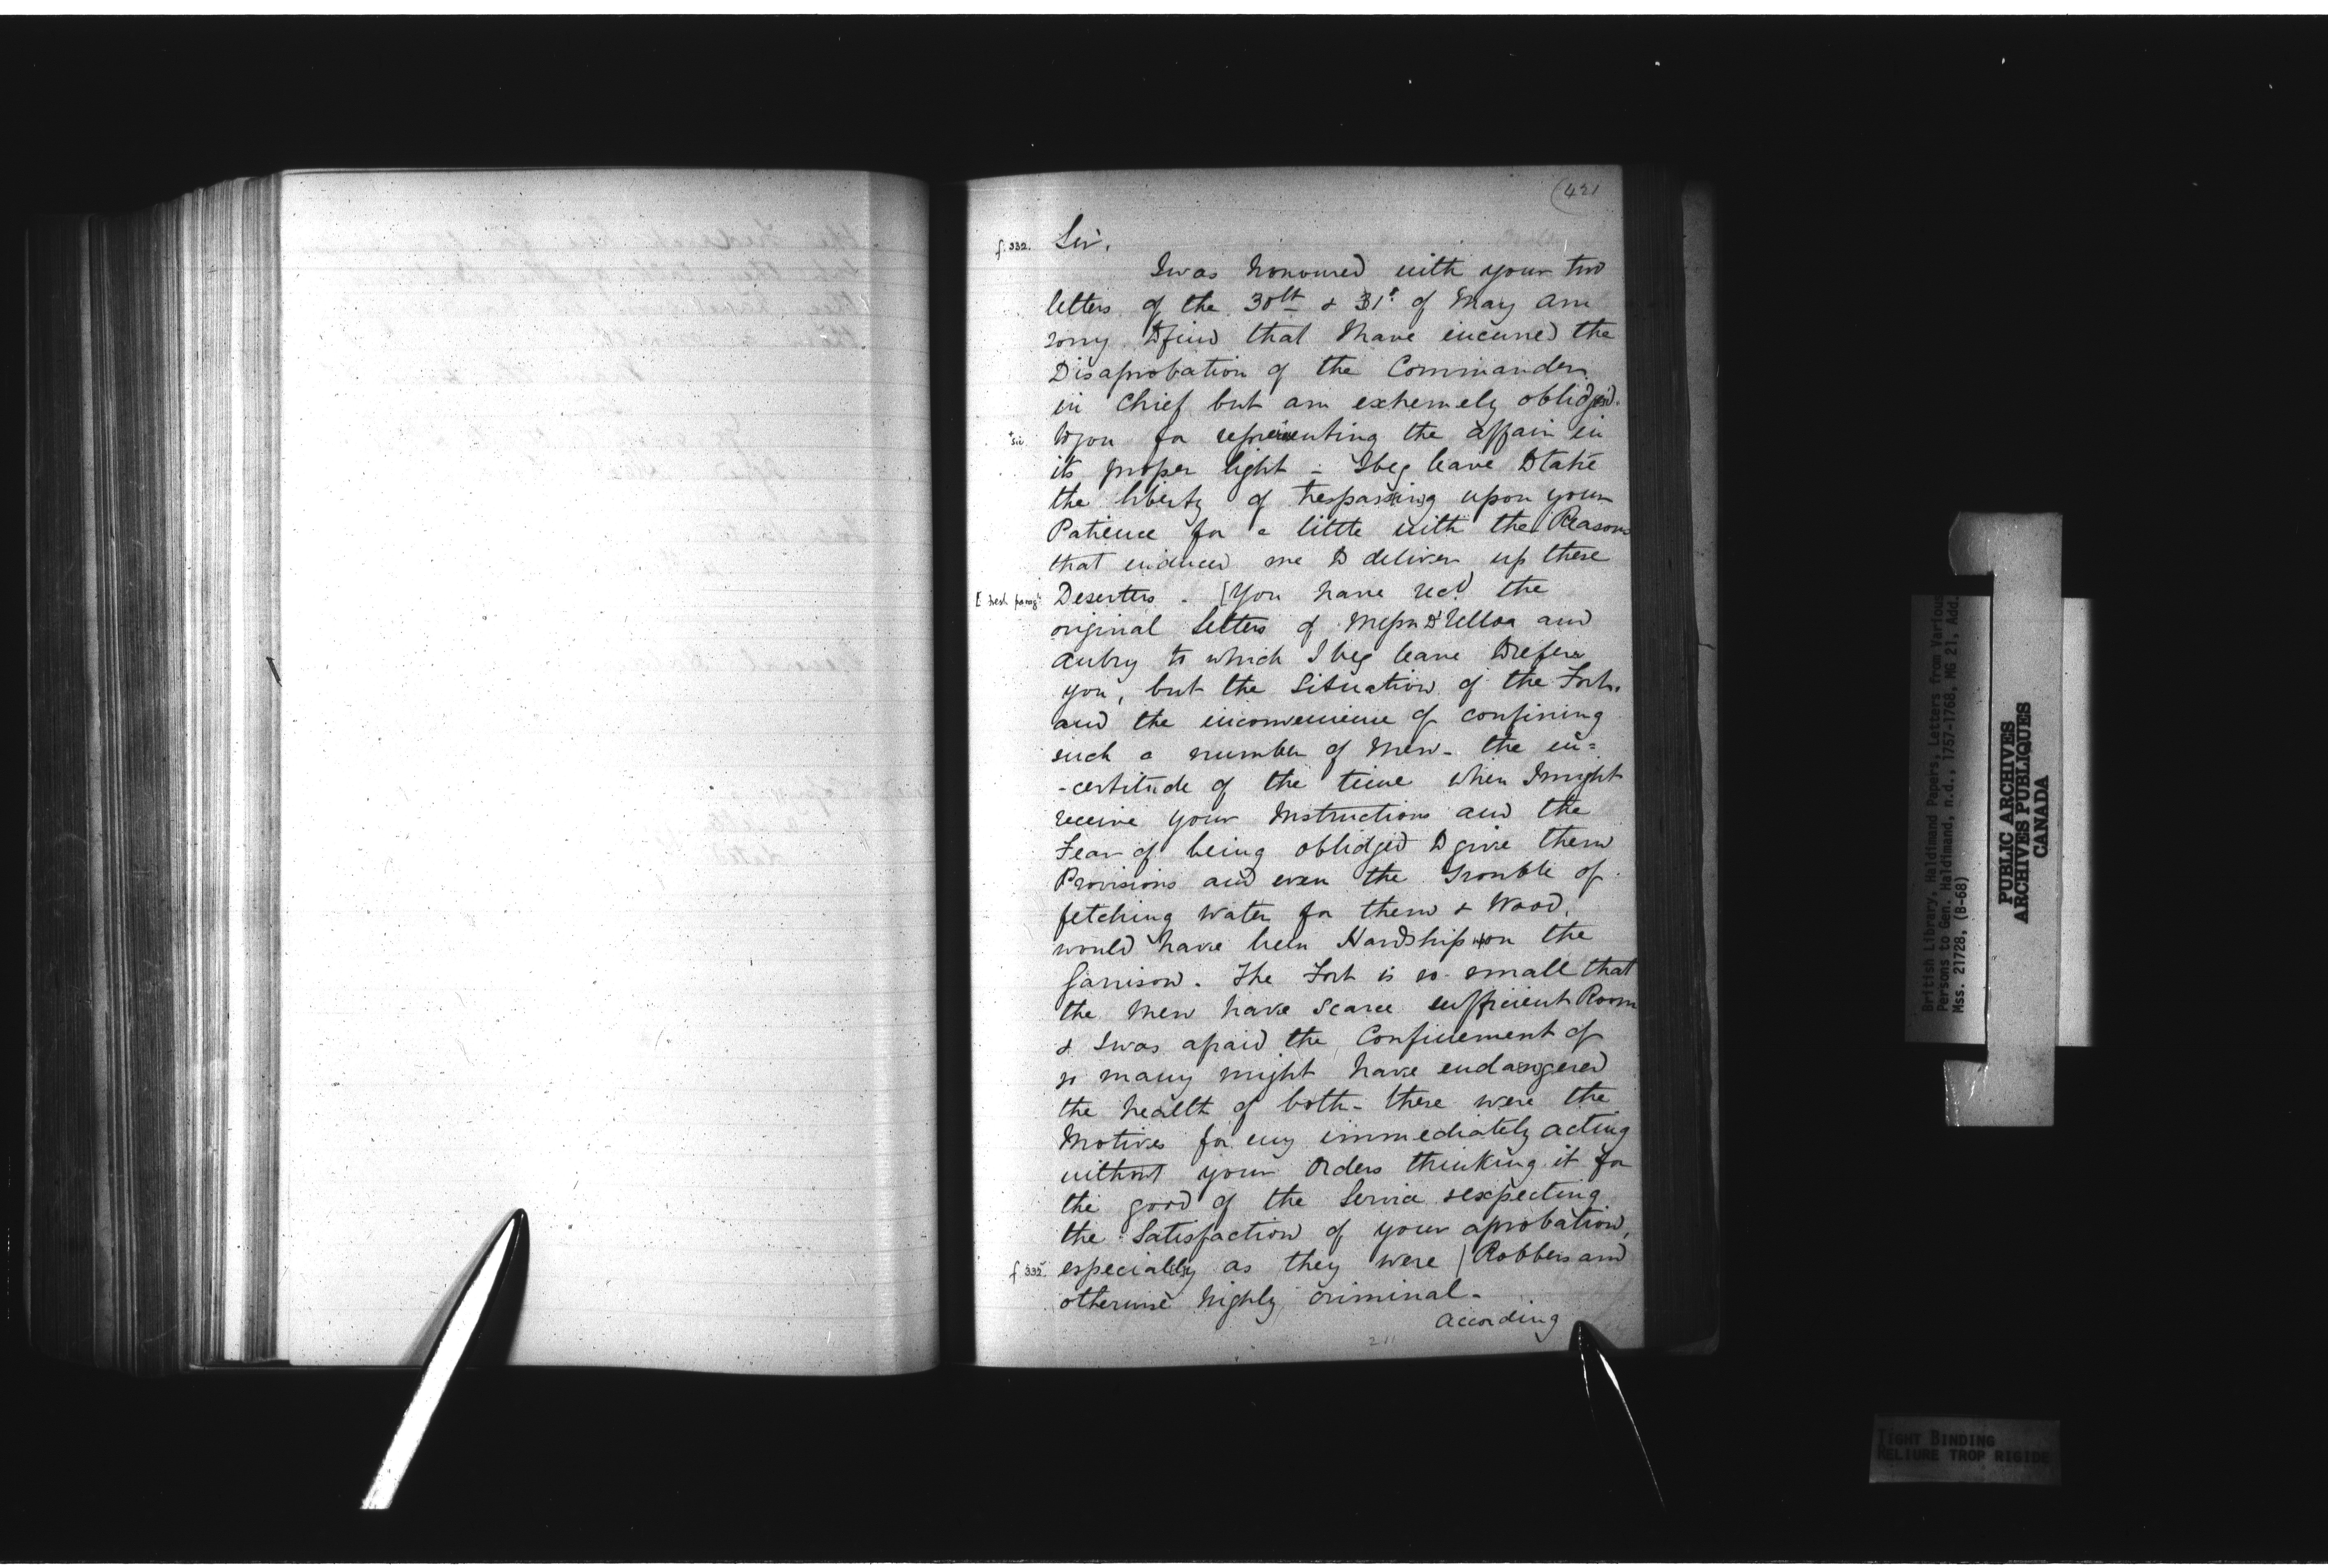 (421
f. 332. Sir.
I was honoured with your two
letters of the 30th & 31st of May am
sorry to find that I have incurred the
Disaprobation of the Commander
in Chief but am extremely oblidged
+sic to you for representing the affair in
its proper light - I beg leave to take
the liberty of trespassing upon your
Patience for a little with the Reasons
that induced me to deliver up these
[ fresh parag: Deserters - [You have recd the
original Letters of Messrs D'Ulloa and
Aubry to which I beg leave to refere
you, but the Situation of the Fort
and the inconvenience of confining
such a number of Men - the in=
-certitude of the time when I might
receive your Instructions and the
Fear of being oblidged to give them
Provisions and even the Trouble of
fetching Water for them & Wood
would have been Hardship on the
Garrison. The Fort is so small that
the Men have scarce sufficient Room
& I was afraid the Confinement of
so many might have endangered
the health of both - these were the
Motives for my immediately acting
without your Orders thinking it for
the good of the Service & expecting
the Satisfaction of your aprobation,
f 332v. especially as they were | Robbers and
otherwise highly criminal -
According
211
British Library, Haldimand Papers, Letters from Various
Persons to Gen. Haldimand, n.d., 1757-1768, MG 21, Add.
Mss. 21728, (B-68)
PUBLIC ARCHIVES
ARCHIVES PUBLIQUES
CANADA
TIGHT BINDING
RELIURE TROP RIGIDE